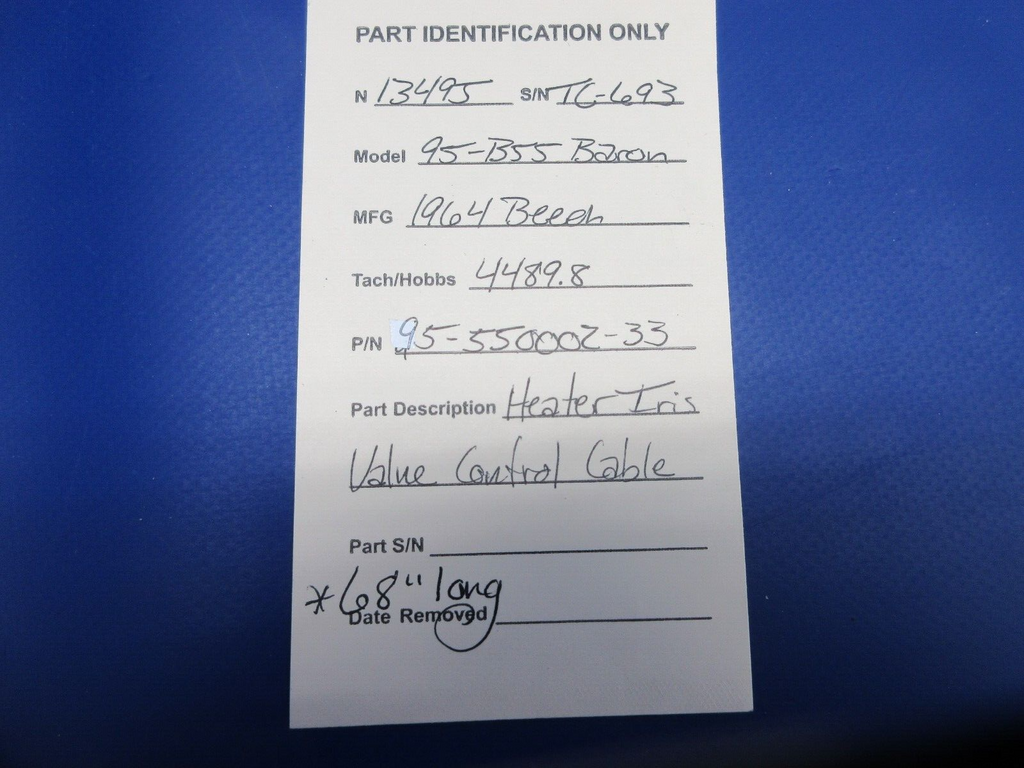 PART IDENTIFICATION ONLY
N 13495 S/N TC-693
Model 95-B55 Baron
MFG 1964 Beech
Tach/Hobbs 4489.8
P/N 95-550002-33
Part Description Heater Iris
Valve Control Cable
Part S/N
*68" long
Date Removed